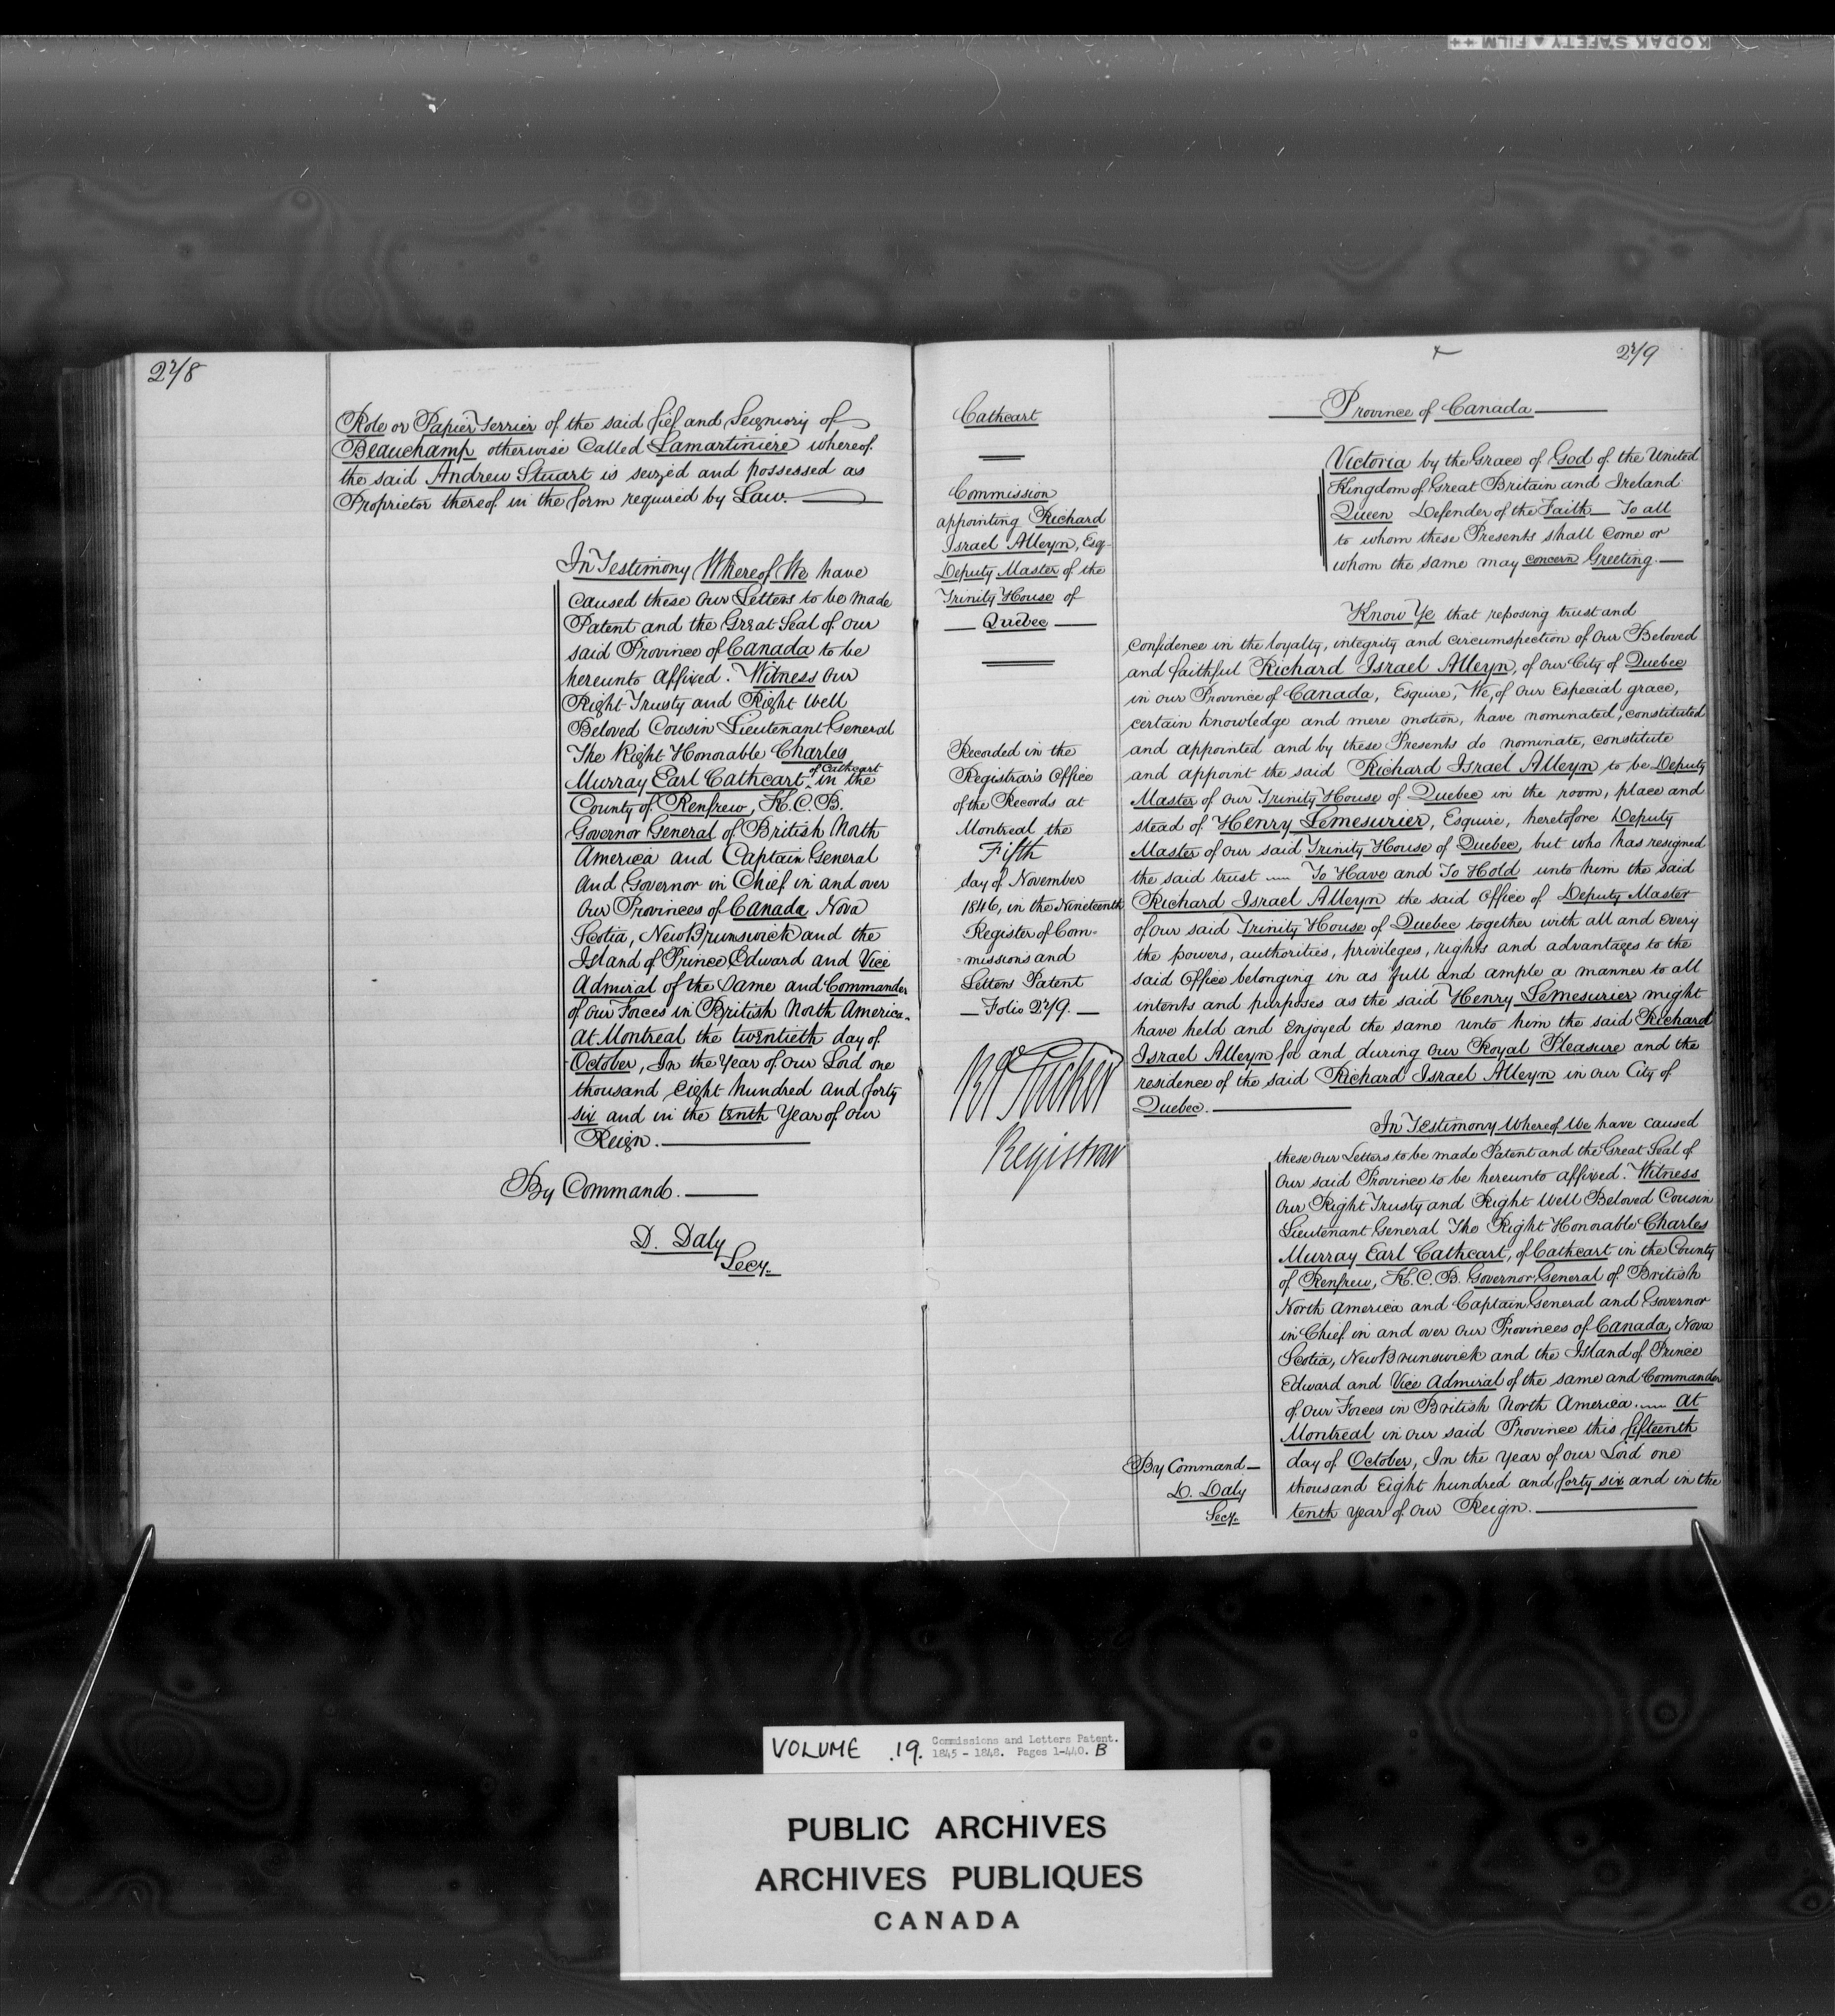 KODAK SAFETY ▲ FILM ++
278
Role or Papier Terrier of the said fief and Seigniory of
Beauchamp otherwise Called Lamartiniere whereof
the said Andrew Stuart is seized and possessed as
Proprietor thereof in the form required by Law.
In Testimony Whereof We have
caused these our Letters to be made
Patent and the Great Seal of our
said Province of Canada to be
hereunto affixed. Witness our
Right Trusty and Right Well
Beloved Cousin Lieutenant General
The Right Honorable Charles
Murray Earl Cathcart of Cathcart in the
County of Renfrew, K.C.B.
Governor General of British North
America and Captain General
and Governor in Chief in and over
our Provinces of Canada Nova
Scotia, New Brunswick and the
Island of Prince Edward and Vice
Admiral of the Same and Commander
of our Forces in British North America.
At Montreal the twentieth day of
October, In the Year of our Lord one
thousand eight hundred and forty
six and in the tenth Year of our
Reign.
By Command.
D. Daly
Secy.
279
Cathcart
Commission
appointing Richard
Israel Alleyn, Esqr
Deputy Master of the
Trinity House of
Quebec
Recorded in the
Registrar's Office
of the Records at
Montreal the
Fifth
day of November
1846, in the Nineteenth
Register of Com-
-missions and
Letters Patent
Folio 279.
Tucker
Registrar
Province of Canada
Victoria by the Grace of God of the United
Kingdom of Great Britain and Ireland
Queen Defender of the Faith — To all
to whom these Presents shall come or
whom the same may concern Greeting. —
Know Ye that reposing trust and
confidence in the loyalty, integrity and circumspection of our Beloved
and faithful Richard Israel Alleyn, of our City of Quebec
in our Province of Canada, Esquire, We, of our Especial grace,
certain knowledge and mere motion, have nominated, constituted
and appointed and by these Presents do nominate, constitute
and appoint the said Richard Israel Alleyn to be Deputy
Master of our Trinity House of Quebec in the room, place and
stead of Henry Lemesurier, Esquire, heretofore Deputy
Master of our said Trinity House of Quebec, but who has resigned
the said trust — To Have and To Hold unto him the said
Richard Israel Alleyn the said Office of Deputy Master
of our said Trinity House of Quebec together with all and every
the powers, authorities, privileges, rights and advantages to the
said Office belonging in as full and ample a manner to all
intents and purposes as the said Henry Lemesurier might
have held and enjoyed the same unto him the said Richard
Israel Alleyn for and during our Royal Pleasure and the
residence of the said Richard Israel Alleyn in our City of
Quebec.
In Testimony Whereof We have caused
these our Letters to be made Patent and the Great Seal of
our said Province to be hereunto affixed. Witness
our Right Trusty and Right Well Beloved Cousin
Lieutenant General The Right Honorable Charles
Murray Earl Cathcart, of Cathcart in the County
of Renfrew, K.C.B. Governor General of British
North America and Captain General and Governor
in Chief in and over our Provinces of Canada, Nova
Scotia, New Brunswick and the Island of Prince
Edward and Vice Admiral of the same and Commander
of our Forces in British North America. — At
Montreal in our said Province this fifteenth
day of October, In the Year of our Lord one
thousand Eight hundred and forty six and in the
tenth year of our Reign.
By Command —
D. Daly
Secy.
VOLUME .19. Commissions and Letters Patent.
1845 - 1848. Pages 1-440. B
PUBLIC ARCHIVES
ARCHIVES PUBLIQUES
CANADA